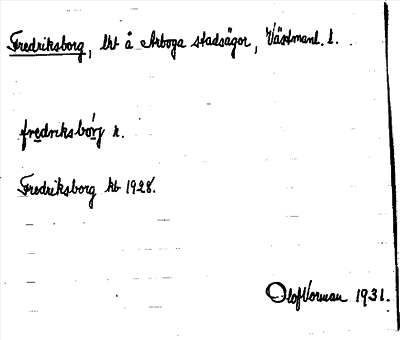 Fredriksborg, lht å Arboga stadsägor, Västmanl. l.
fredriksbórj r.
Fredriksborg kb 1928.
Olof Vorman 1931.